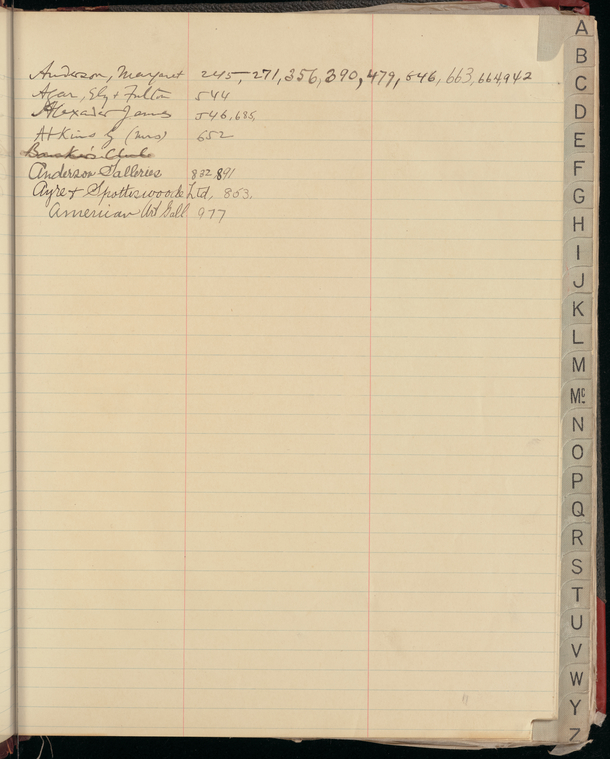 Anderson, Margaret 245, 271, 356, 390, 479, 646, 663, 664, 942
Agar, Ely + Fulton 544
Alexader James 546, 685,
Atkins G (Mrs) 652
Banker's Club
Anderson Galleries 832, 891
Ayre + Spottiswoode Ltd, 853,
American Art Gall 977
A
B
C
D
E
F
G
H
I
J
K
L
M
Mc
N
O
P
Q
R
S
T
U
V
W
Y
Z